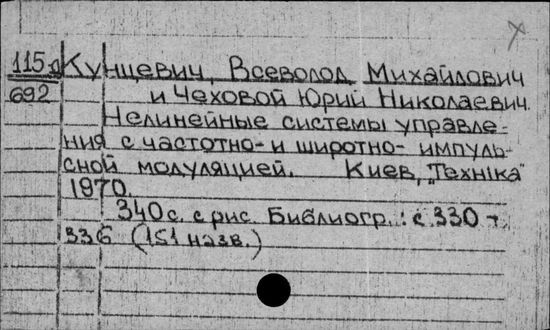 115д Кунцевич, Всеволод Михайлович
692 и Чеховой Юрий Николаевич.
Нелинейные системы управле-
ния с частотно- и широтно- импуль-
сной модуляцией. Киев, "Технiка"
1970.
340 с. с рис. Библиогр.: с. 330-
336 (151 назв.)